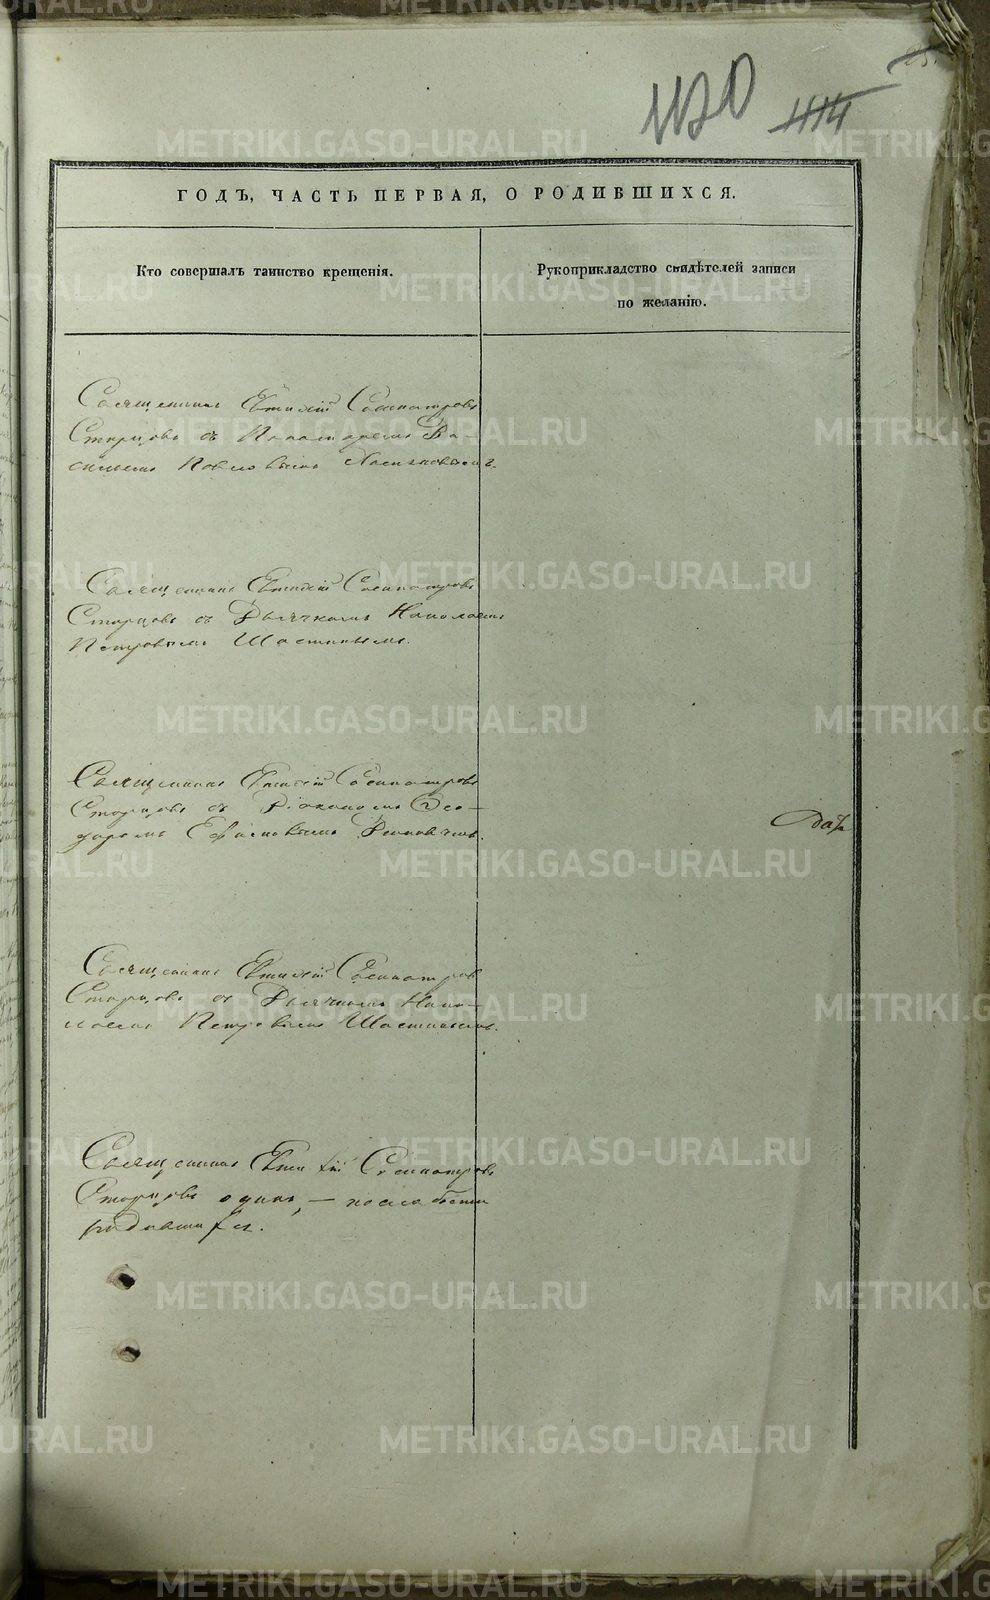 1120 414
25.
ГОДЪ, ЧАСТЬ ПЕРВАЯ, О РОДИВШИХСЯ.
Кто совершалъ таинство крещенія.
Рукоприкладство свидѣтелей записи
по желанію.
Священникъ Евтихій Сосипатровъ
Старцовъ съ Пономаремъ Ва-
сильемъ Павловымъ
Священникъ Евтихій Сосипатровъ
Старцовъ съ Дьячкомъ Николаемъ
Петровымъ Шастинымъ.
Священникъ Евтихій Сосипатровъ
Старцовъ съ Діакономъ Ѳео-
доромъ Ефимовымъ
Священникъ Евтихій Сосипатровъ
Старцовъ съ Дьячкомъ Нико-
лаемъ Петровымъ Шастинымъ.
Священникъ Евтихій Сосипатровъ
Старцовъ одинъ, — по слабости
родившагося.
METRIKI.GASO-URAL.RU